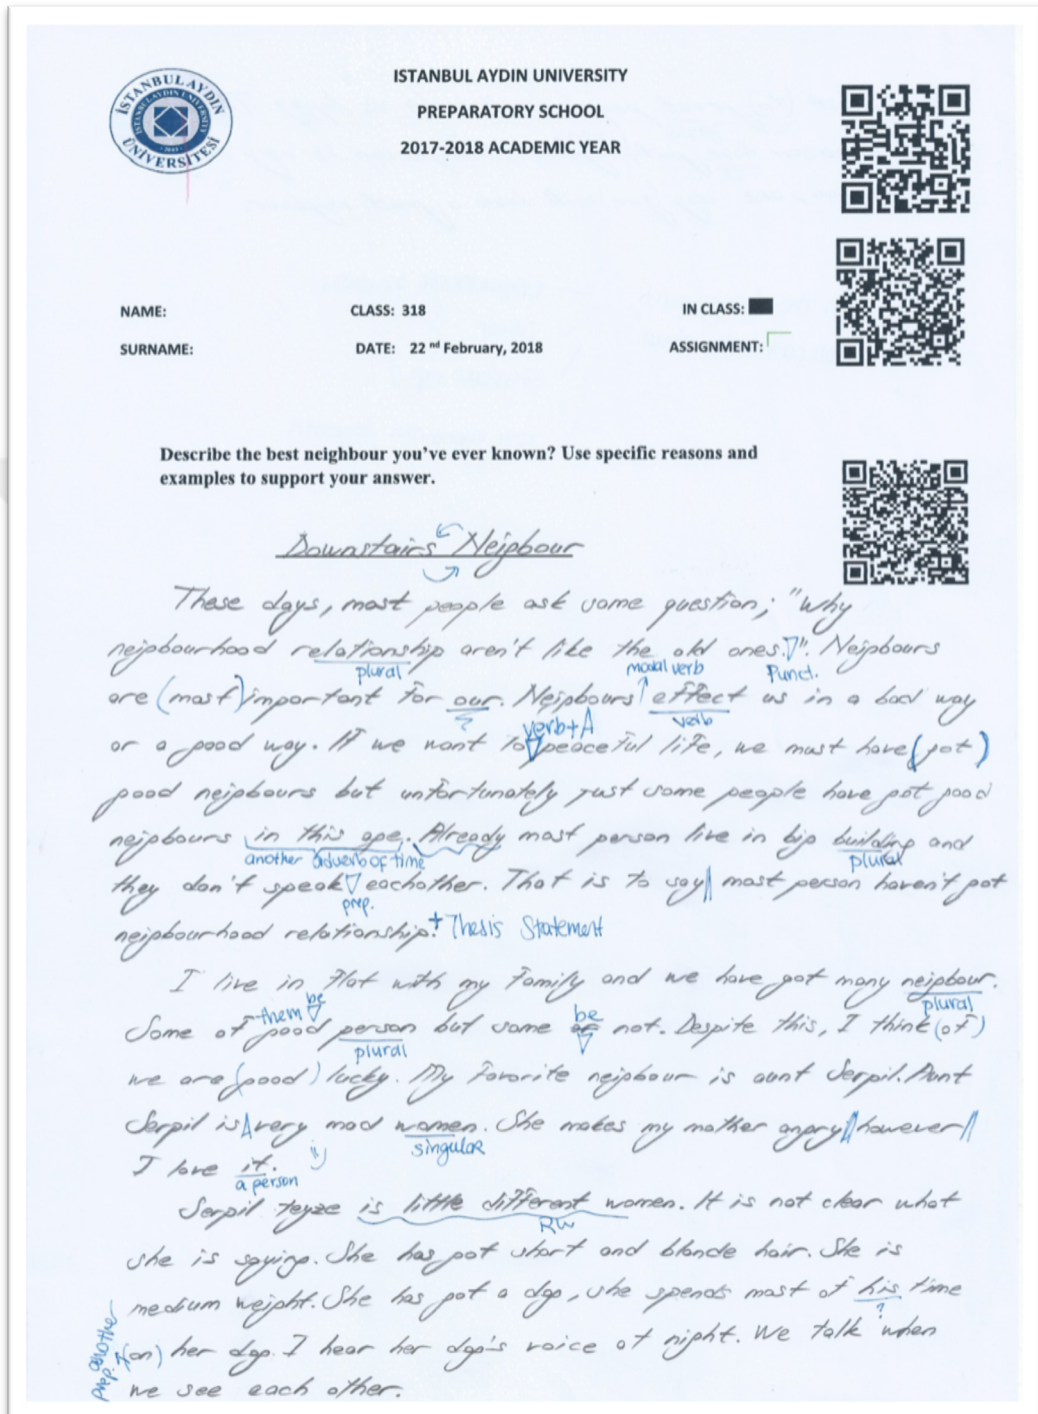 İSTANBUL AYDIN
ÜNİVERSİTESİ
ISTANBUL AYDIN UNIVERSITY
PREPARATORY SCHOOL
2017-2018 ACADEMIC YEAR
NAME: CLASS: 318 IN CLASS:
SURNAME: DATE: 22 nd February, 2018 ASSIGNMENT:
Describe the best neighbour you've ever known? Use specific reasons and
examples to support your answer.
Downstairs Neigbour
These days, most people ask same question; "Why
neigbourhood relationship aren't like the old ones.". Neigbours
plural modal verb Punct.
are (most) important for our. Neigbours effect us in a bad way
verb+A verb
or a good way. If we want to peaceful life, we must have (got)
good neigbours but unfortunately just some people have got good
neigbours in this age. Already most person live in big building and
another adverb of time plural
they don't speak eachother. That is to say most person haven't got
prep.
neigbourhood relationship. + Thesis Statement
I live in flat with my family and we have got many neigbour.
them be be plural
Some of good person but some or not. Despite this, I think (of)
plural
we are (good) lucky. My favorite neigbour is aunt Serpil. Aunt
Serpil is very mad women. She makes my mother angry however
singular
I love it.
a person
Serpil teyze is little different women. It is not clear what
RW
she is saying. She has got short and blonde hair. She is
medium weight. She has got a dog, she spends most of his time
?
another prep. (on) her dog. I hear her dog's voice at night. We talk when
we see each other.